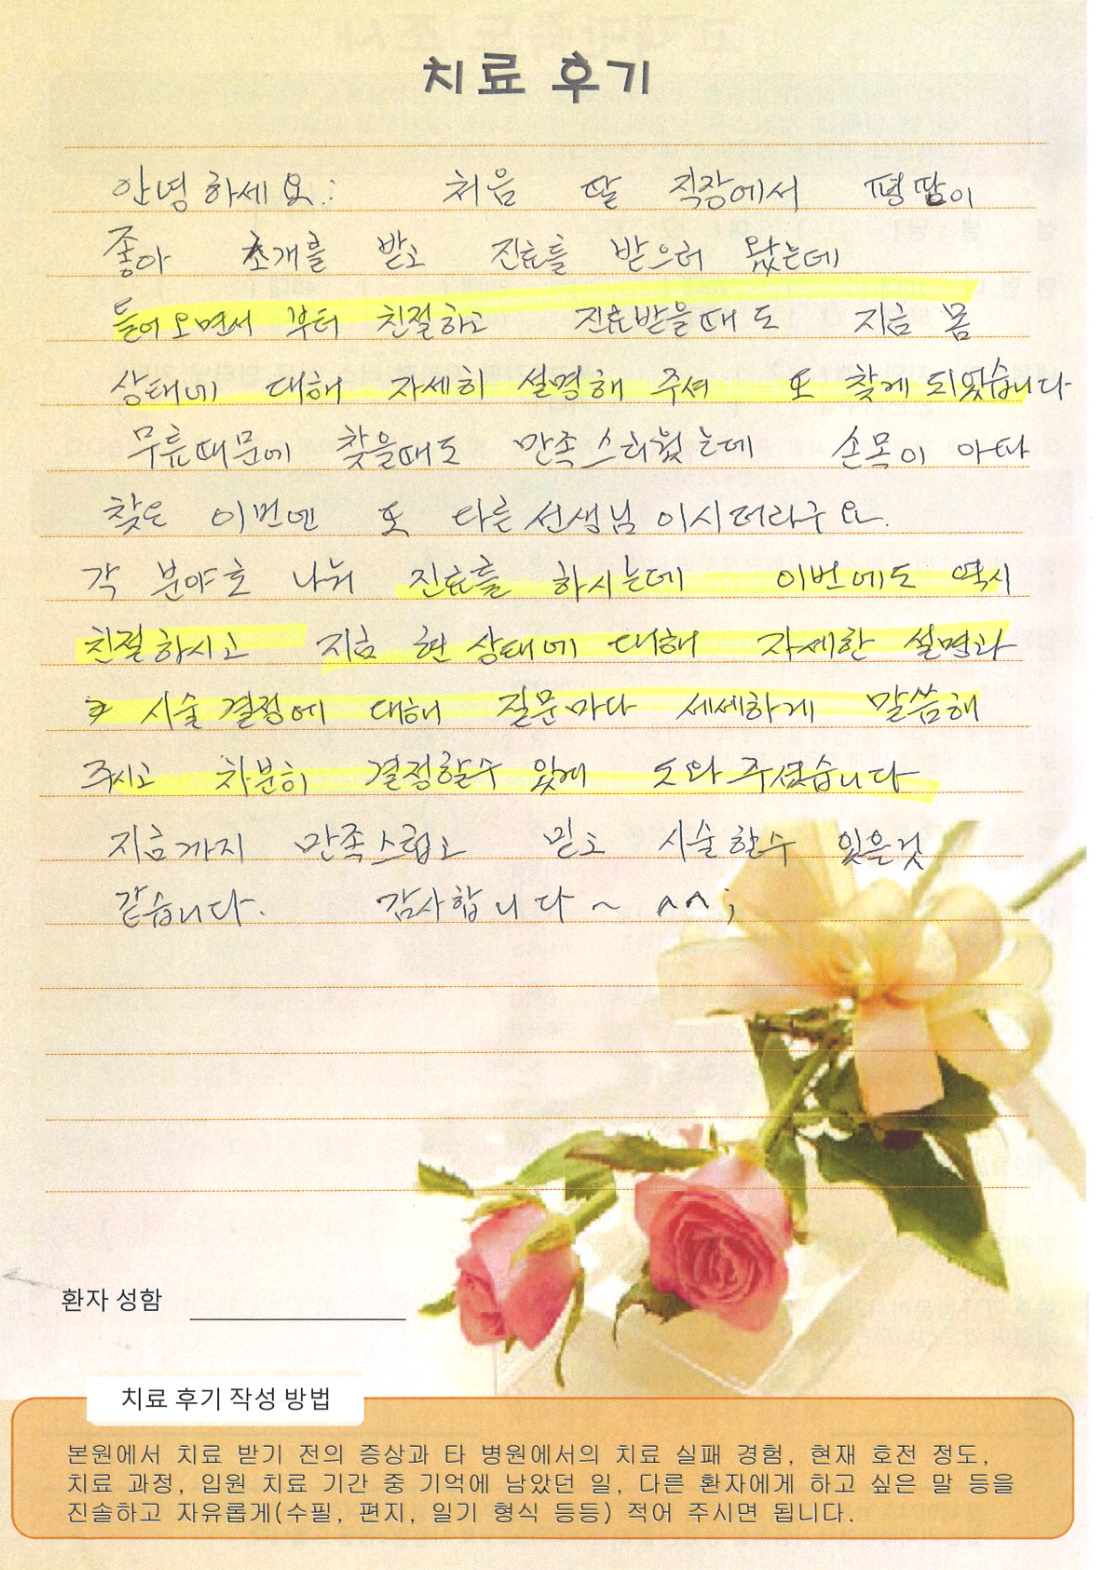 치료 후기
안녕하세요.: 처음 딸 직장에서 평판이
좋아 소개를 받고 진료를 받으러 왔는데
들어오면서 부터 친절하고 진료받을때도 지금 몸
상태에 대해 자세히 설명해 주셔 또 찾게 되었습니다
무릎때문에 찾을때도 만족스러웠는데 손목이 아파
찾은 이번엔 또 다른 선생님이시더라구요.
각 분야로 나눠 진료를 하시는데 이번에도 역시
친절하시고 지금 현 상태에 대해 자세한 설명과
시술 결정에 대해 질문마다 세세하게 말씀해
주시고 차분히 결정할수 있게 도와주셨습니다
지금까지 만족스럽고 믿고 시술할수 있을것
같습니다. 감사합니다~ ^^;
환자 성함
치료 후기 작성 방법
본원에서 치료 받기 전의 증상과 타 병원에서의 치료 실패 경험, 현재 호전 정도,
치료 과정, 입원 치료 기간 중 기억에 남았던 일, 다른 환자에게 하고 싶은 말 등을
진솔하고 자유롭게(수필, 편지, 일기 형식 등등) 적어 주시면 됩니다.